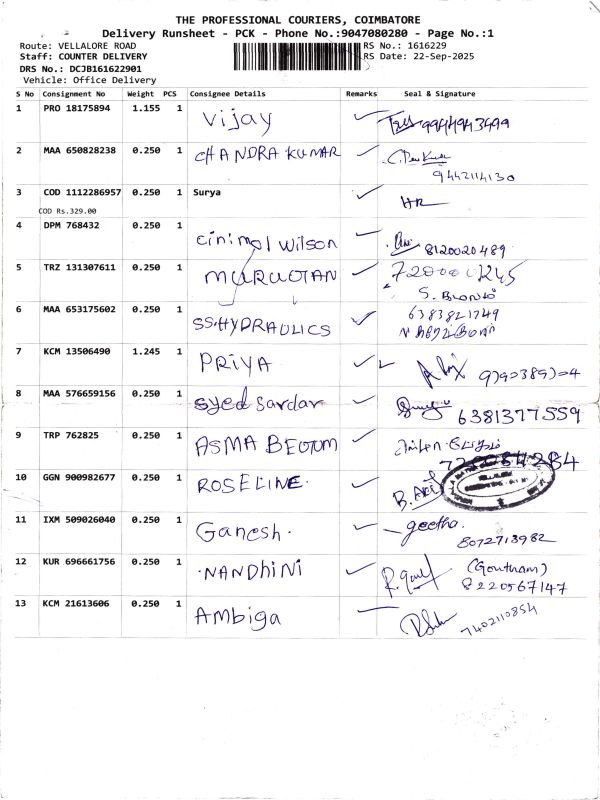 THE PROFESSIONAL COURIERS, COIMBATORE
Delivery Runsheet - PCK - Phone No.:9047080280 - Page No.:1
Route: VELLALORE ROAD
RS No.: 1616229
Staff: COUNTER DELIVERY
RS Date: 22-Sep-2025
DRS No.: DCJB161622901
Vehicle: Office Delivery
S No Consignment No Weight PCS Consignee Details Remarks Seal & Signature
1 PRO 18175894 1.155 1 Vijay 9944943499
2 MAA 650828238 0.250 1 CHANDRA KUMAR
9442114130
3 COD 1112286957 0.250 1 Surya HR
COD Rs.329.00
4 DPM 768432 0.250 1 Cinimol Wilson 8120020489
5 TRZ 131307611 0.250 1 MURUGTAN
6 MAA 653175602 0.250 1 SS.HYDRAULICS 6383821749
7 KCM 13506490 1.245 1 PRIYA
8 MAA 576659156 0.250 1 Syed Sardar 6381377559
9 TRP 762825 0.250 1 ASMA BEGUM
10 GGN 900982677 0.250 1 ROSELINE.
VELLALORE
11 IXM 509026040 0.250 1 Ganesh. geetha.
8072713982
12 KUR 696661756 0.250 1 NANDHINI (Goutham)
8220567147
13 KCM 21613606 0.250 1 Ambiga 7402110854